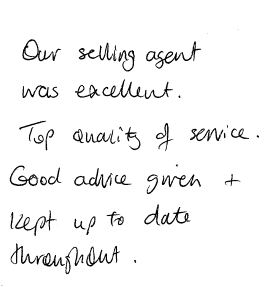 Our selling agent
was excellent.
Top quality of service.
Good advice given +
kept up to date
throughout.